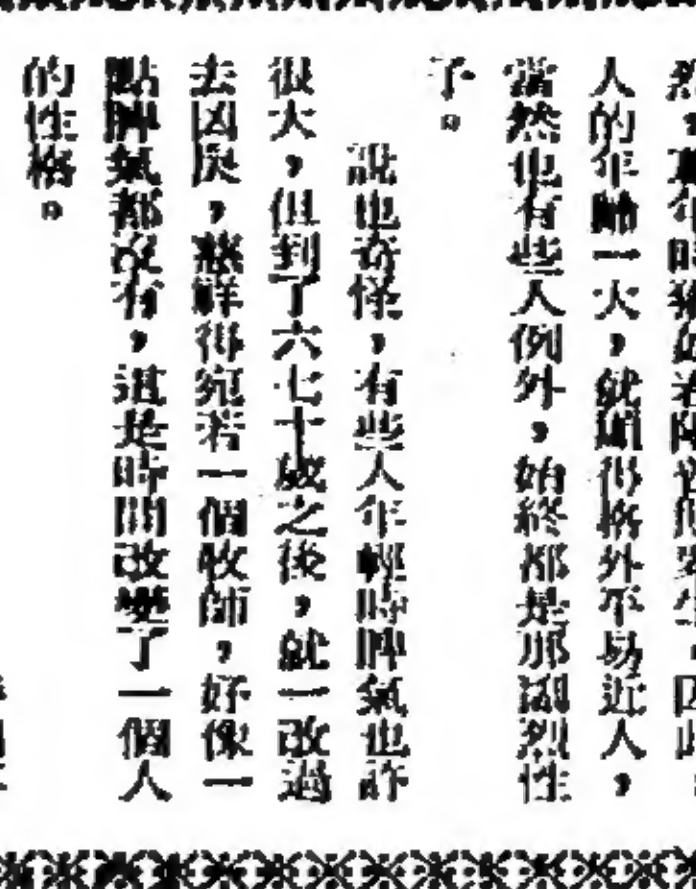 人的年齡一大，就顯得格外不易近人，
當然也有些人例外，始終都是那副烈性
子。
說也奇怪，有些人年輕時脾氣也許
很大，但到了六七十歲之後，就一改過
去凶戾，慈祥得宛若一個牧師，好像一
點脾氣都沒有，這是時間改變了一個人
的性格。